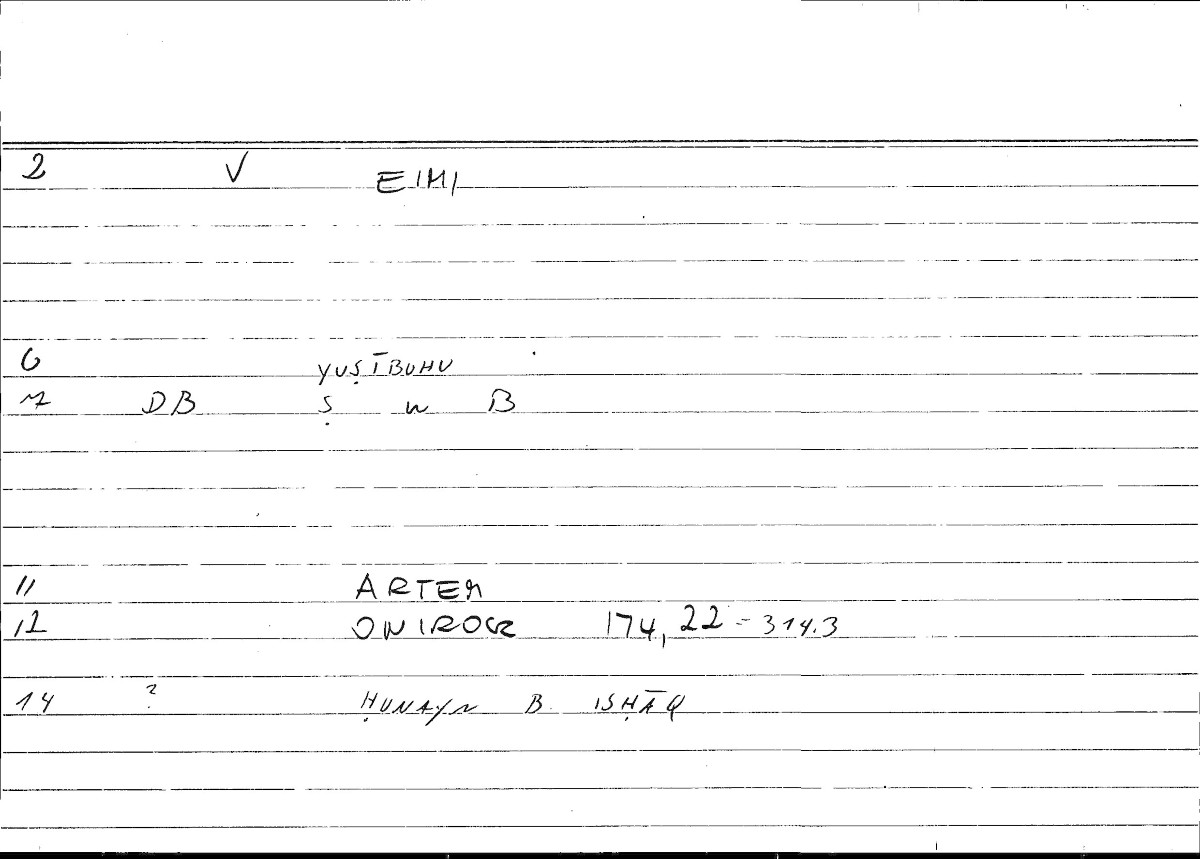 2 V EIMI
6 YUṢĪBUHU
7 DB Ṣ W B
11 ARTEM
12 ONIROCR 174,22 = 314.3
14 ? ḤUNAYN B. ISḤĀQ